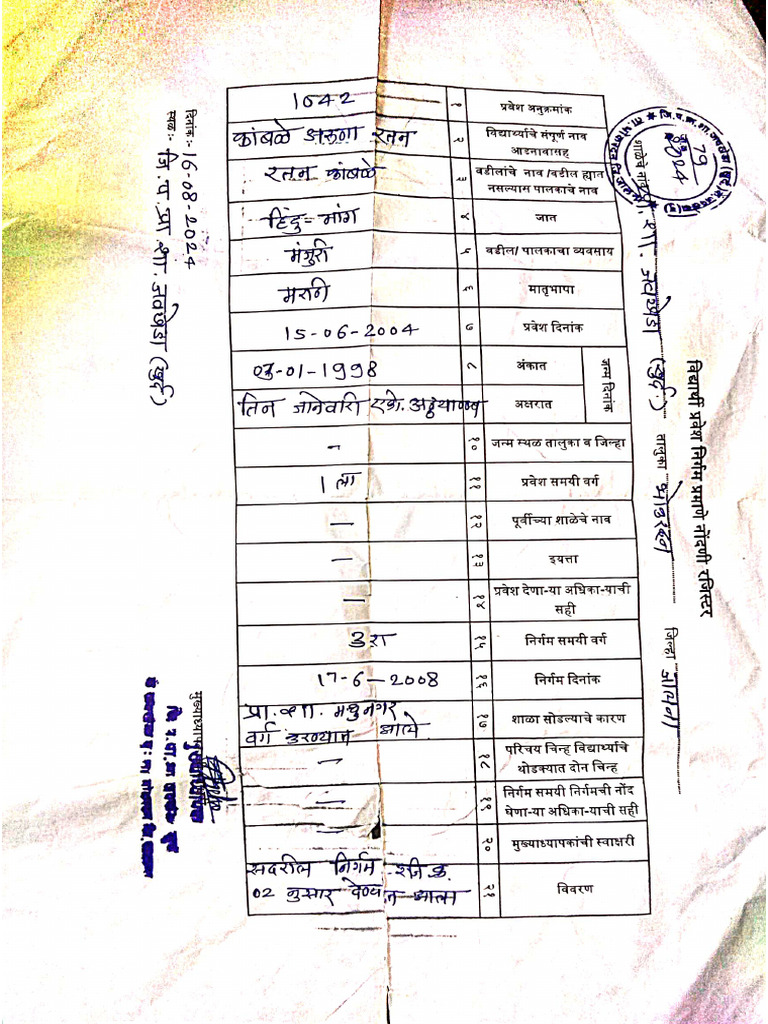 विद्यार्थी प्रवेश निर्गम प्रमाणे नोंदणी रजिस्टर
शाळेचे नांव प्रा. शा. जवखेडा (खुर्द) तालुका भोकरदन जिल्हा जालना
79
2024
१ प्रवेश अनुक्रमांक 1042
२ विद्यार्थ्याचे संपूर्ण नाव आडनावासह कांबळे अरुणा रतन
३ वडीलांचे नाव /वडील ह्यात नसल्यास पालकाचे नाव रतन कांबळे
४ जात हिंदु-मांग
५ वडील/ पालकाचा व्यवसाय मंजुरी
६ मातृभाषा मराठी
७ प्रवेश दिनांक 15-06-2004
जन्म दिनांक
८ अंकात 03-01-1998
अक्षरात तिन जानेवारी एको. अठ्ठयाण्णव
१० जन्म स्थळ तालुका व जिल्हा -
११ प्रवेश समयी वर्ग 1 ला
१२ पूर्वीच्या शाळेचे नाव -
१३ इयत्ता -
१४ प्रवेश देणा-या अधिका-याची सही -
१५ निर्गम समयी वर्ग 3रा
१६ निर्गम दिनांक 17-6-2008
१७ शाळा सोडल्याचे कारण प्रा. शा. मधुनगर वर्ग करण्यात आले
१८ परिचय चिन्ह विद्यार्थ्याचे थोडक्यात दोन चिन्ह -
१९ निर्गम समयी निर्गमची नोंद घेणा-या अधिका-याची सही -
२० मुख्याध्यापकांची स्वाक्षरी
२१ विवरण सदरील निर्गम रजि क्र. 02 नुसार देण्यात आला
दिनांक :- 16-08-2024
स्थळ :- जि. प. प्रा. शा. जवखेडा (खुर्द)